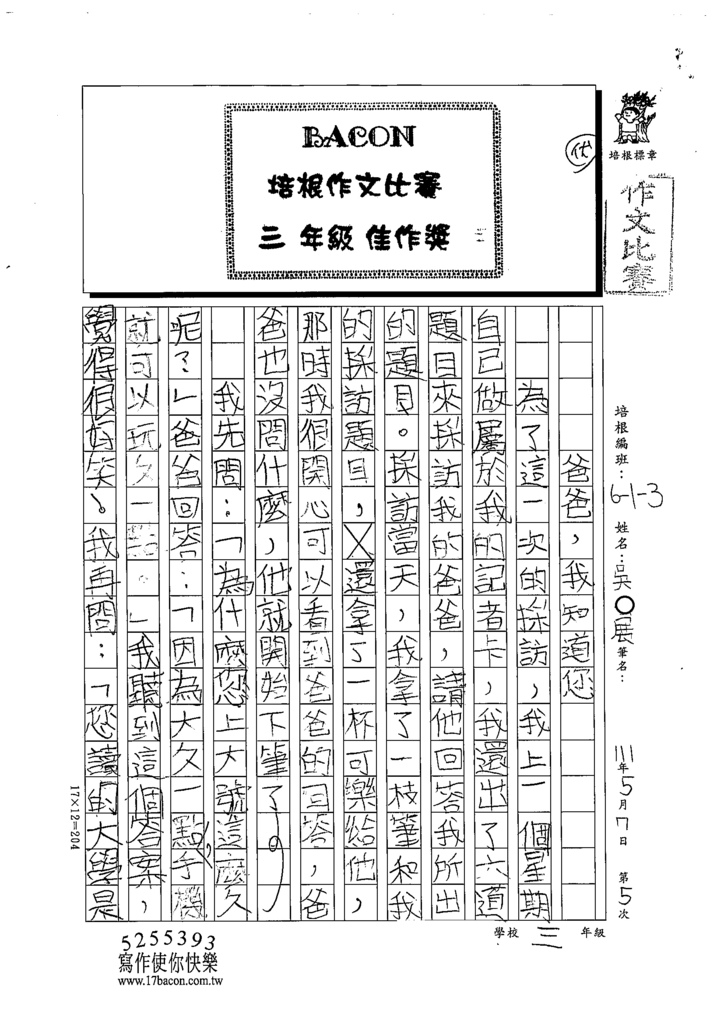 BACON
培根作文比賽
三年級佳作獎
三
優
培根標章
作文比賽
培根編班：6-1-3 姓名：吳〇展 筆名： 111年5月7日 第5次
學校 三 年級
爸爸，我知道您
為了這一次的採訪，我上一個星期
自己做屬於我的記者卡，我還出了六道
題目來採訪我的爸爸，請他回答我所出
的題目。採訪當天，我拿了一枝筆和我
的採訪題目，還拿了一杯可樂給他，
那時我很開心可以看到爸爸的回答，爸
爸也沒問什麼，他就開始下筆了。
我先問：「為什麼您上大號這麼久
呢？」爸爸回答：「因為大久一點，手機
就可以玩久一點。」我聽到這個答案，
覺得很好笑。我再問：「您讀的大學是
17×12=204
5255393
寫作使你快樂
www.17bacon.com.tw